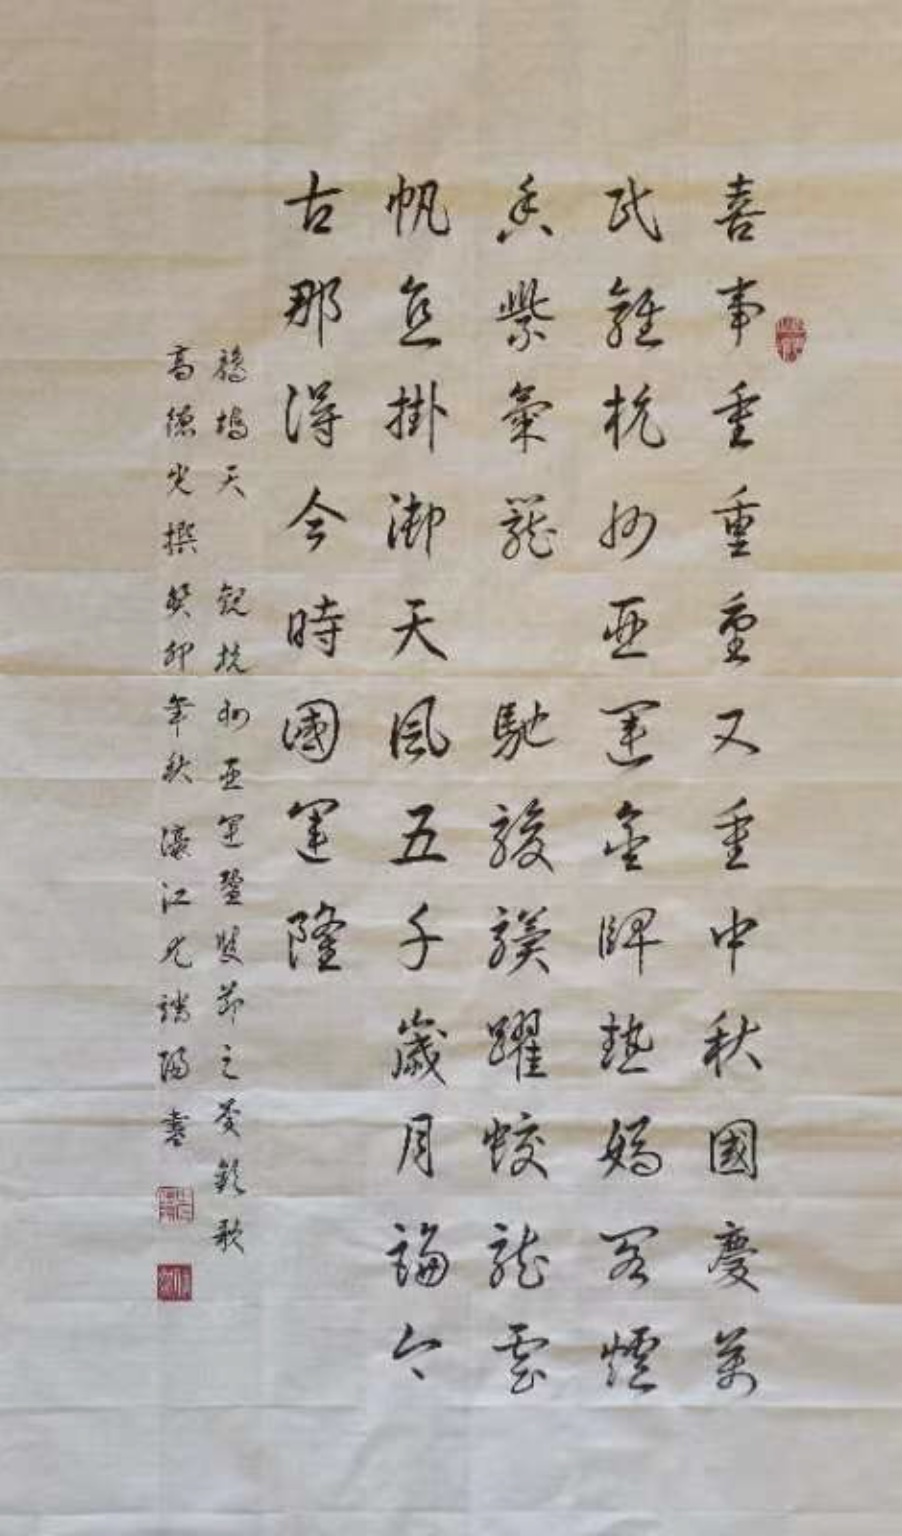 喜事重重重又重中秋國慶萬
民雄杭州亞運金牌熱嫣若煙
香紫氣籠 馳駿驥躍蛟龍雲
帆直掛御天風五千歲月論今
古那得今時國運隆
鷓鴣天 観杭州亞運暨雙節之慶歡歌
高德光撰癸卯年秋濠江尤端陽書